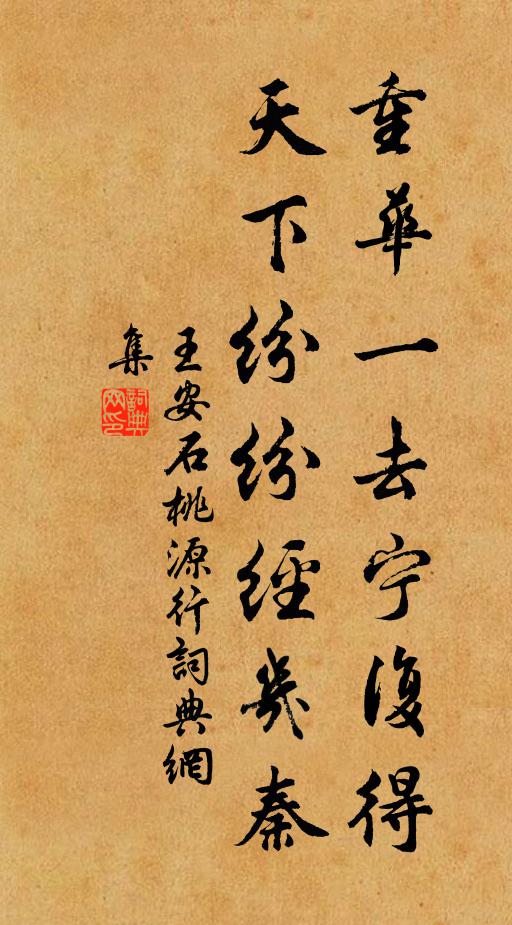 重華一去宁復得
天下纷纷經幾秦
王安石桃源行詞典網
集
詞典网印